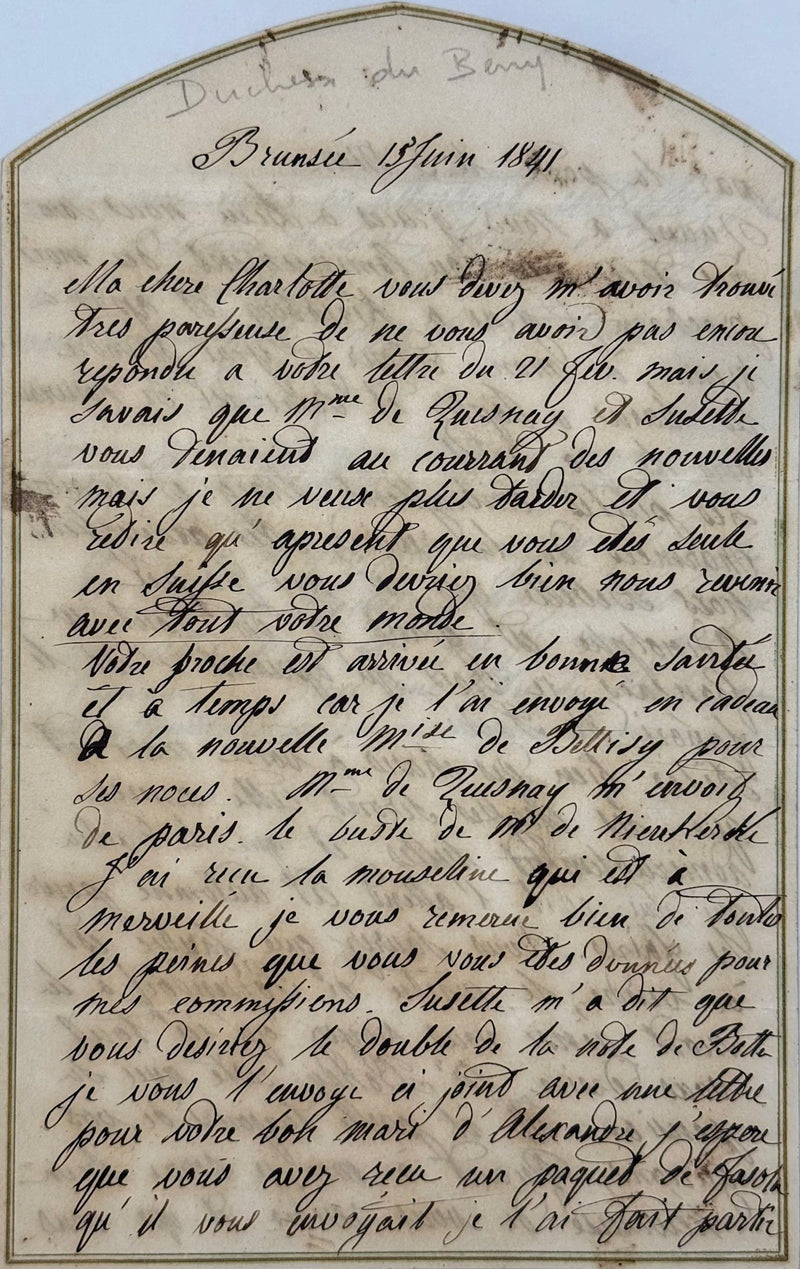 Duchess du Berry
Brunsée 15 Juin 1841
Ma chere Charlotte vous devez m'avoir trouvé
tres paresseuse de ne vous avoir pas encore
repondu a votre lettre du 21 fev. mais je
savais que Mme de Quesnay et Susette
vous tenaient au courrant des nouvelles
mais je ne veux plus tarder et vous
redire qu'apresent que vous etês seule
en Suisse vous devriez bien nous revenir
avec tout votre monde.
Votre broche est arrivée en bonne santée
et à temps car je l'ai envoyé en cadeau
à la nouvelle Mise de Bellisy pour
ses noces. Mme de Quesnay m'envoit
de paris. le buste de Mr de Nieukerke
J'ai recu la mouseline qui est à
merveille je vous remercie bien de toutes
les peines que vous vous êtes données pour
mes commissions. Susette m'a dit que
vous desiriez le double de la note de Botta
je vous l'envoye ci joint avec une lettre
pour votre bon mari d'Alexandre j'espere
que vous avez recu un paquet de
qu'il vous envoyait je l'ai fait partir